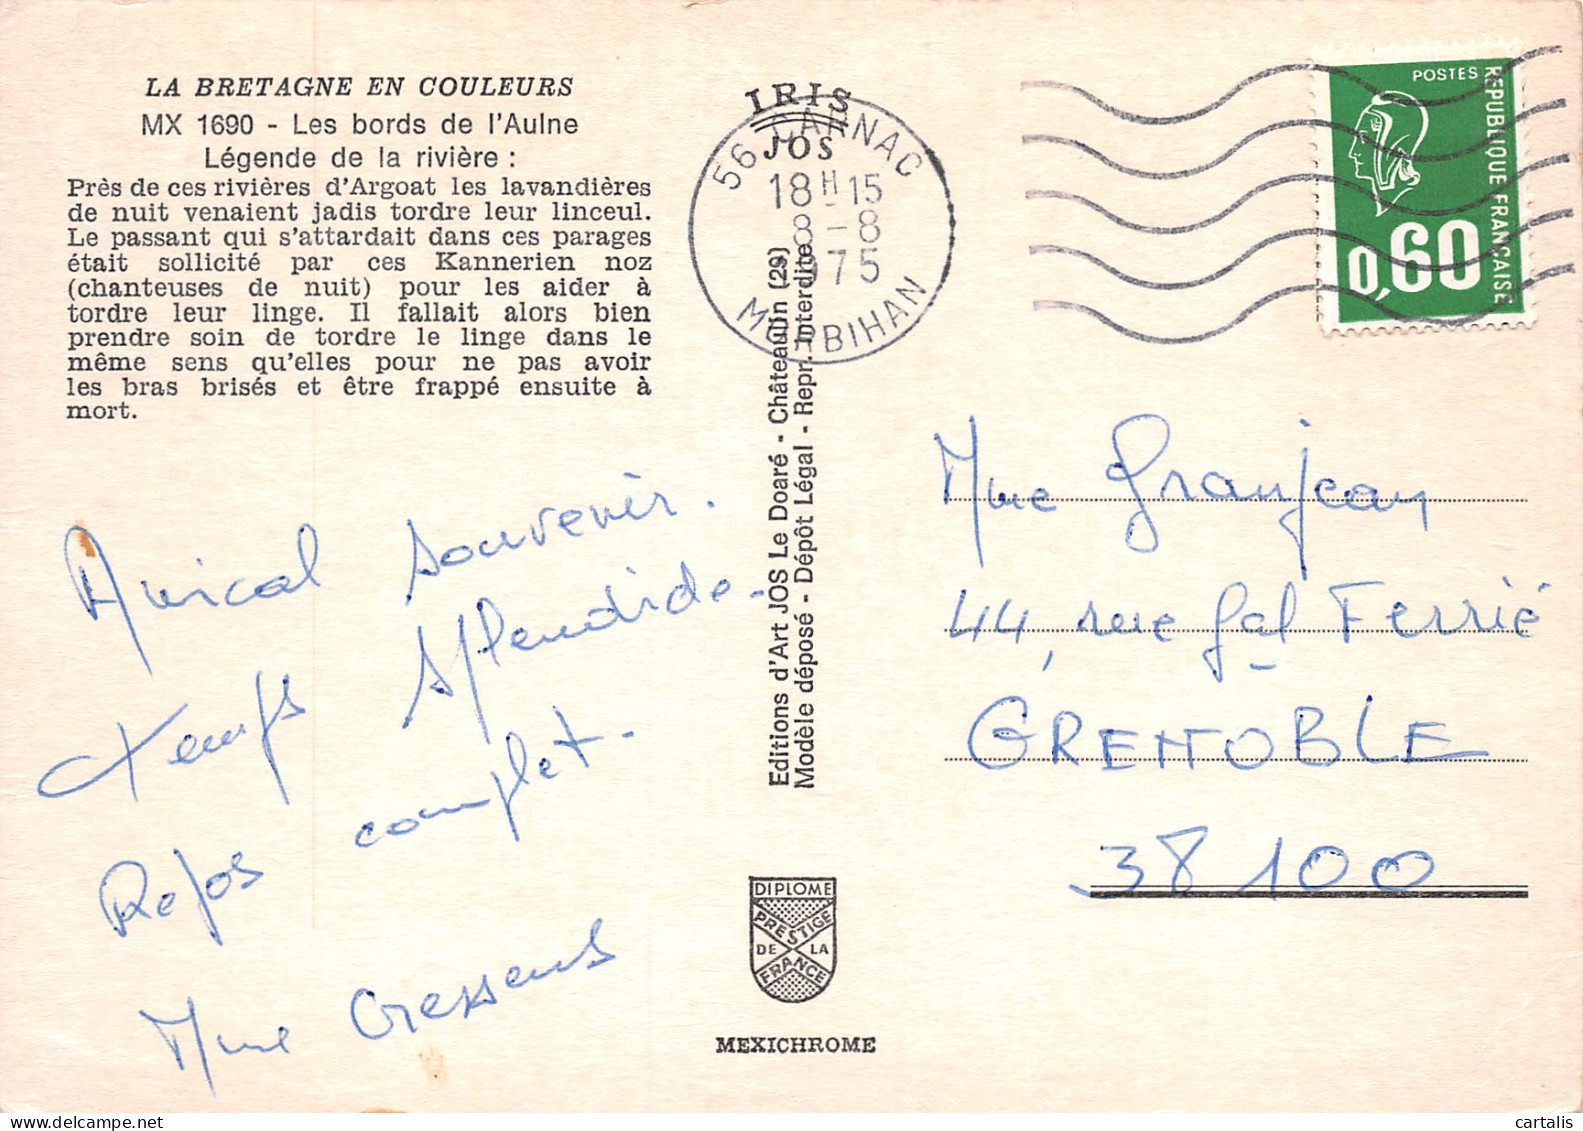 LA BRETAGNE EN COULEURS
MX 1690 - Les bords de l'Aulne
Légende de la rivière :
Près de ces rivières d'Argoat les lavandières
de nuit venaient jadis tordre leur linceul.
Le passant qui s'attardait dans ces parages
était sollicité par ces Kannerien noz
(chanteuses de nuit) pour les aider à
tordre leur linge. Il fallait alors bien
prendre soin de tordre le linge dans le
même sens qu'elles pour ne pas avoir
les bras brisés et être frappé ensuite à
mort.
Amical souvenir.
temps splendide.
Repos complet.
Mme Cressens
IRIS
JOS
56 CARNAC
18H15
8-8
1975
MORBIHAN
Editions d'Art JOS Le Doaré - Châteaulin (29)
Modèle déposé - Dépôt Légal - Repr. Interdite
DIPLOME
PRESTIGE
DE LA
FRANCE
MEXICHROME
POSTES
REPUBLIQUE FRANÇAISE
0,60
Mme Granjean
44, rue Gal Ferrié
GRENOBLE
38100
cartalis